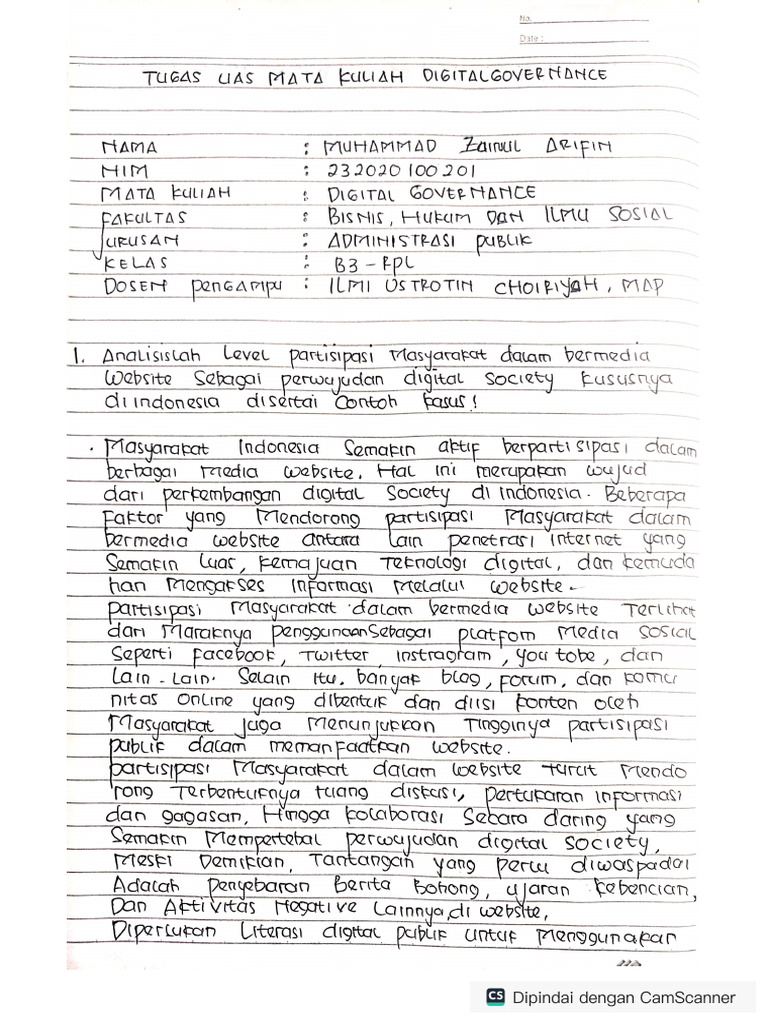 No.
Date :
TUGAS UAS MATA KULIAH DIGITAL GOVERNANCE
NAMA : MUHAMMAD Zainul ARIFIN
NIM : 232020100201
MATA KULIAH : DIGITAL GOVERNANCE
FAKULTAS : BISNIS, HUKUM DAN ILMU SOSIAL
JURUSAN : ADMINISTRASI publik
KELAS : B3 - RPL
DOSEN pengampu : ILMI USTROTIN CHOIRIYAH, MAP
1. Analisislah Level partisipasi Masyarakat dalam bermedia
Website Sebagai perwujudan digital society kususnya
di indonesia disertai Contoh kasus!
. Masyarakat Indonesia Semakin aktif berpartisipasi dalam
berbagai media website. Hal ini merupakan wujud
dari perkembangan digital Society di Indonesia. Beberapa
Faktor yang Mendorong partisipasi Masyarakat dalam
bermedia website antara lain penetrasi internet yang
Semakin luas, kemajuan Teknologi digital, dan kemuda
han Mengakses informasi Melalui website.
partisipasi Masyarakat dalam bermedia website Terlihat
dari Maraknya penggunaan Sebagai platfom Media sosial
Seperti facebook, Twitter, instragram, you tobe, dan
Lain-Lain. Selain itu, banyak blog, forum, dan komu
nitas online yang dibentuk dan diisi konten oleh
Masyarakat juga Menunjukkan Tingginya partisipasi
publik dalam memanfaatkan website.
partisipasi Masyarakat dalam website turut Mendo
rong Terbentuknya ruang diskusi, pertukaran informasi
dan gagasan, Hingga kolaborasi Secara daring yang
Semakin Mempertebal perwujudan digital society,
Meski Demikian, Tantangan yang perlu diwaspadai
Adalah penyebaran Berita Bohong, ujaran kebencian,
Dan Aktivitas Negative Lainnya, di website,
Diperlukan Literasi digital publik untuk Menggunakan
CS Dipindai dengan CamScanner